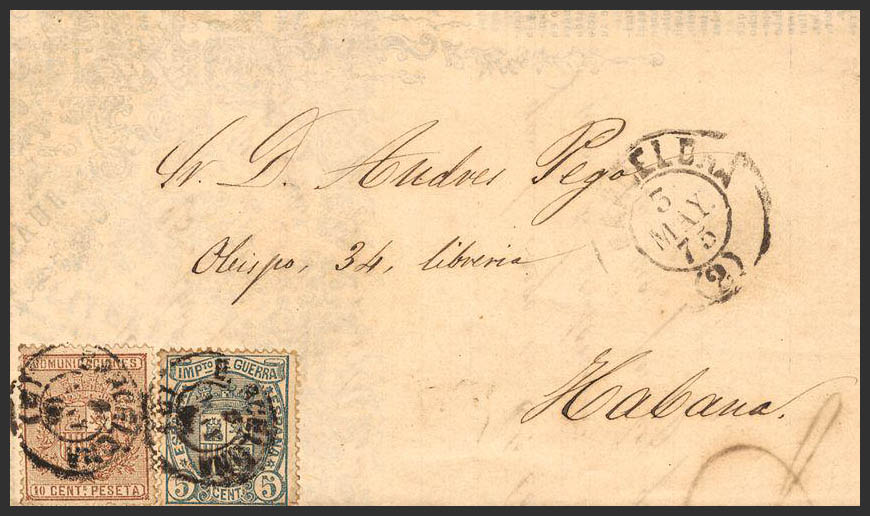 Sr. D. Andres Pego
Obispo, 34, libreria
Habana.
BARCELONA
5
MAY.
75
(2)
COMUNICACIONES
10 CENTs PESETA
IMPTO DE GUERRA
ESPAÑA
5 CENTs 5